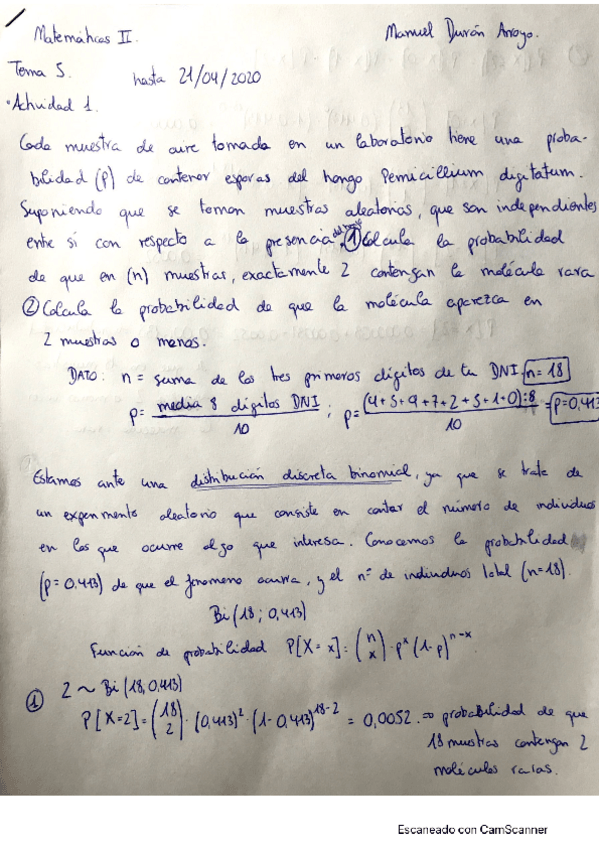 Matemáticas II.
Manuel Durán Arroyo.
Tema 5.
hasta 21/04/2020
• Actividad 1.
Cada muestra de aire tomada en un laboratorio tiene una proba-
bilidad (p) de contener esporas del hongo Pemicillium digitatum.
Suponiendo que se toman muestras aleatorias, que son independientes
entre sí con respecto a la presencia ① Calcula la probabilidad
de que en (n) muestras, exactamente 2 contengan la molécula rara
② Calcula la probabilidad de que la molécula aparezca en
2 muestras o menos.
DATO: n = suma de los tres primeros dígitos de tu DNI. n=18
p = media 8 dígitos DNI / 10 ; p = (4+5+9+7+2+5+1+0):8 / 10 = p=0,413
Estamos ante una distribución discreta binomial, ya que se trata de
un experimento aleatorio que consiste en contar el número de individuos
en los que ocurre algo que interesa. Conocemos la probabilidad
(p = 0,413) de que el fenomeno ocurra, y el nº de individuos total (n=18).
Bi (18 ; 0,413)
Función de probabilidad P[X = x] = (n x) · pˣ (1-p)ⁿ⁻ˣ
① 2 ~ Bi (18, 0,413)
P[X=2] = (18 2) · (0,413)² · (1-0,413)¹⁸⁻² = 0,0052. ⇒ probabilidad de que
18 muestras contengan 2
moléculas raras.
Escaneado con CamScanner